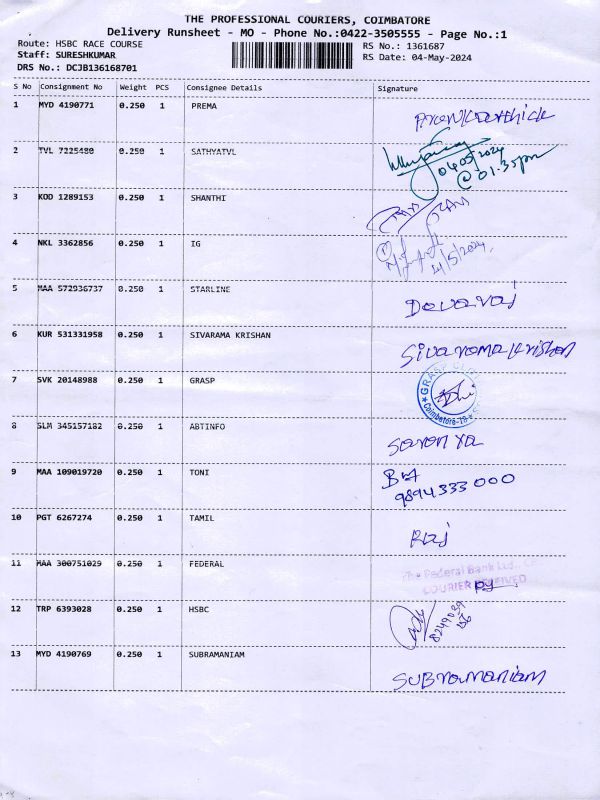 THE PROFESSIONAL COURIERS, COIMBATORE
Delivery Runsheet - MO - Phone No.:0422-3505555 - Page No.:1
Route: HSBC RACE COURSE RS No.: 1361687
Staff: SURESHKUMAR RS Date: 04-May-2024
DRS No.: DCJB136168701
S No Consignment No Weight PCS Consignee Details Signature
1 MYD 4190771 0.250 1 PREMA
2 TVL 7225480 0.250 1 SATHYATVL
04/05/2024
@ 01.35pm
3 KOD 1289153 0.250 1 SHANTHI
4 NKL 3362856 0.250 1 IG
4/5/2024,
5 MAA 572936737 0.250 1 STARLINE Devaraj
6 KUR 531331958 0.250 1 SIVARAMA KRISHAN Sivaramakrishan
7 SVK 20148988 0.250 1 GRASP GRASP
Coimbatore-18
8 SLM 345157182 0.250 1 ABTINFO Saranya
9 MAA 109019720 0.250 1 TONI
9894333000
10 PGT 6267274 0.250 1 TAMIL Raj
11 MAA 300751029 0.250 1 FEDERAL The Federal Bank Ltd.,
COURIER RECEIVED
12 TRP 6393028 0.250 1 HSBC
13 MYD 4190769 0.250 1 SUBRAMANIAM Subramaniam